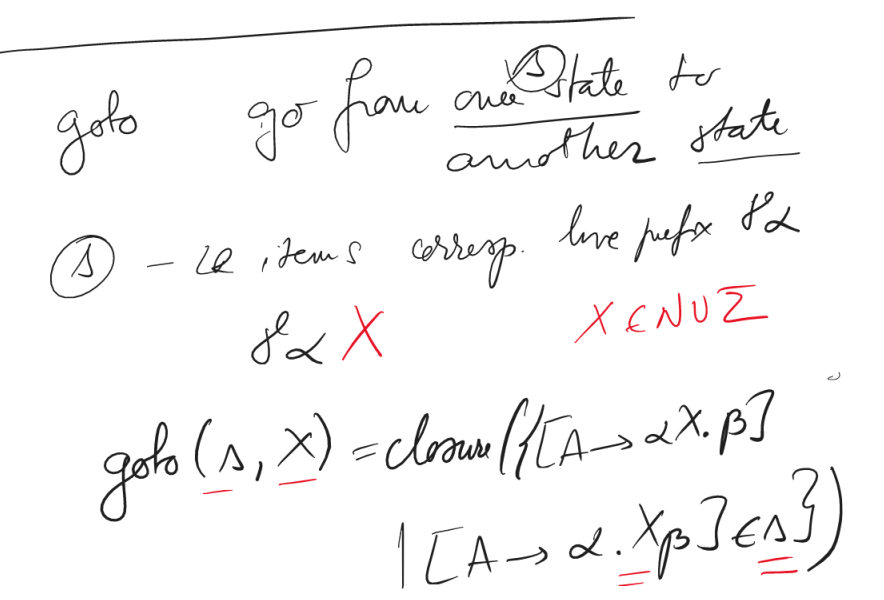 goto go from one state to
another state
s - LR items corresp. live prefix γα
γα X X ∈ N ∪ Σ
goto(s, X) = closure({[A → αX.β]
| [A → α.Xβ] ∈ s})